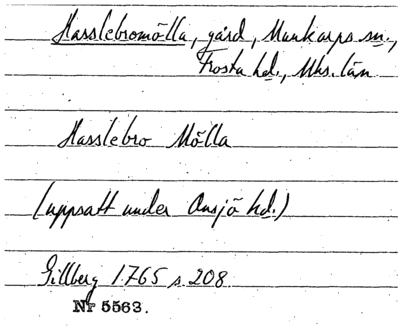 Hasslebromölla, gård, Munkarps sn.,
Frosta hd., Mhs. län
Hasslebro Mölla
(uppsatt under Onsjö hd.)
Gillberg 1765 s. 208
Nr 5563.